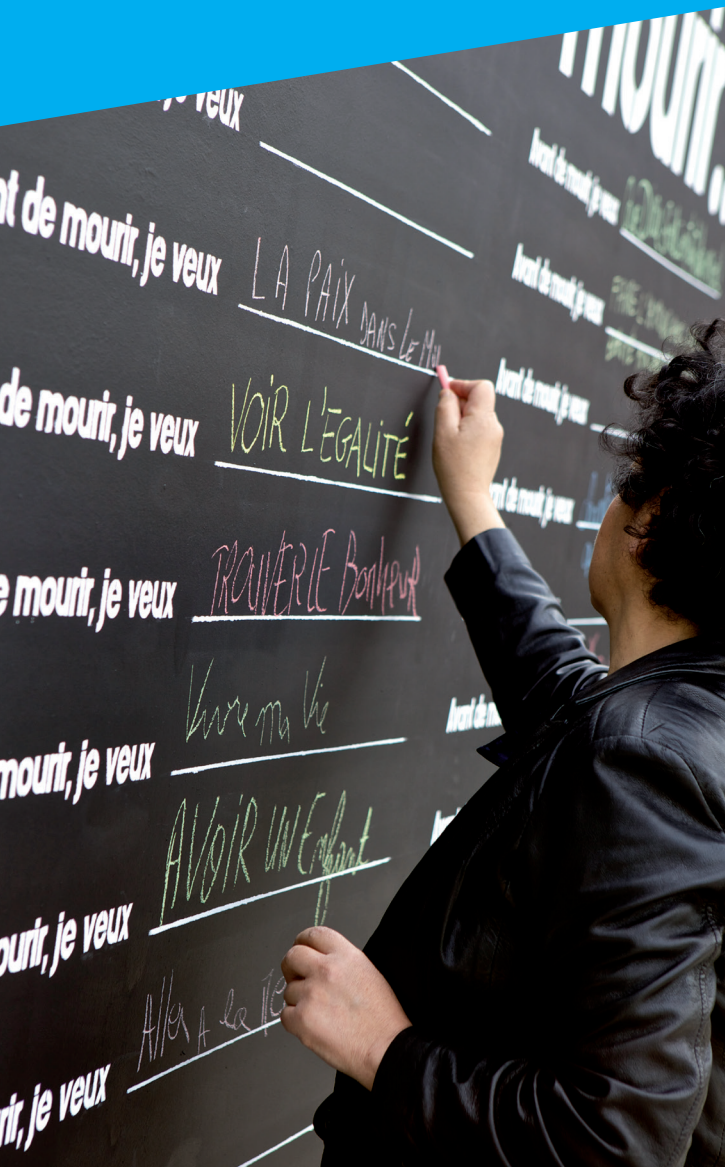 je veux
mourir.
nt de mourir, je veux LA PAIX DANS LE
de mourir, je veux VOIR L'ÉGALITÉ
e mourir, je veux TROUVER LE BONHEUR
mourir, je veux Vivre ma Vie
ourir, je veux AVOIR UN Enfant
rir, je veux Aller A la
Avant de mourir, je veux
Avant de mourir, je veux
Avant de mourir, je veux
ant de mourir, je veux
Avant de